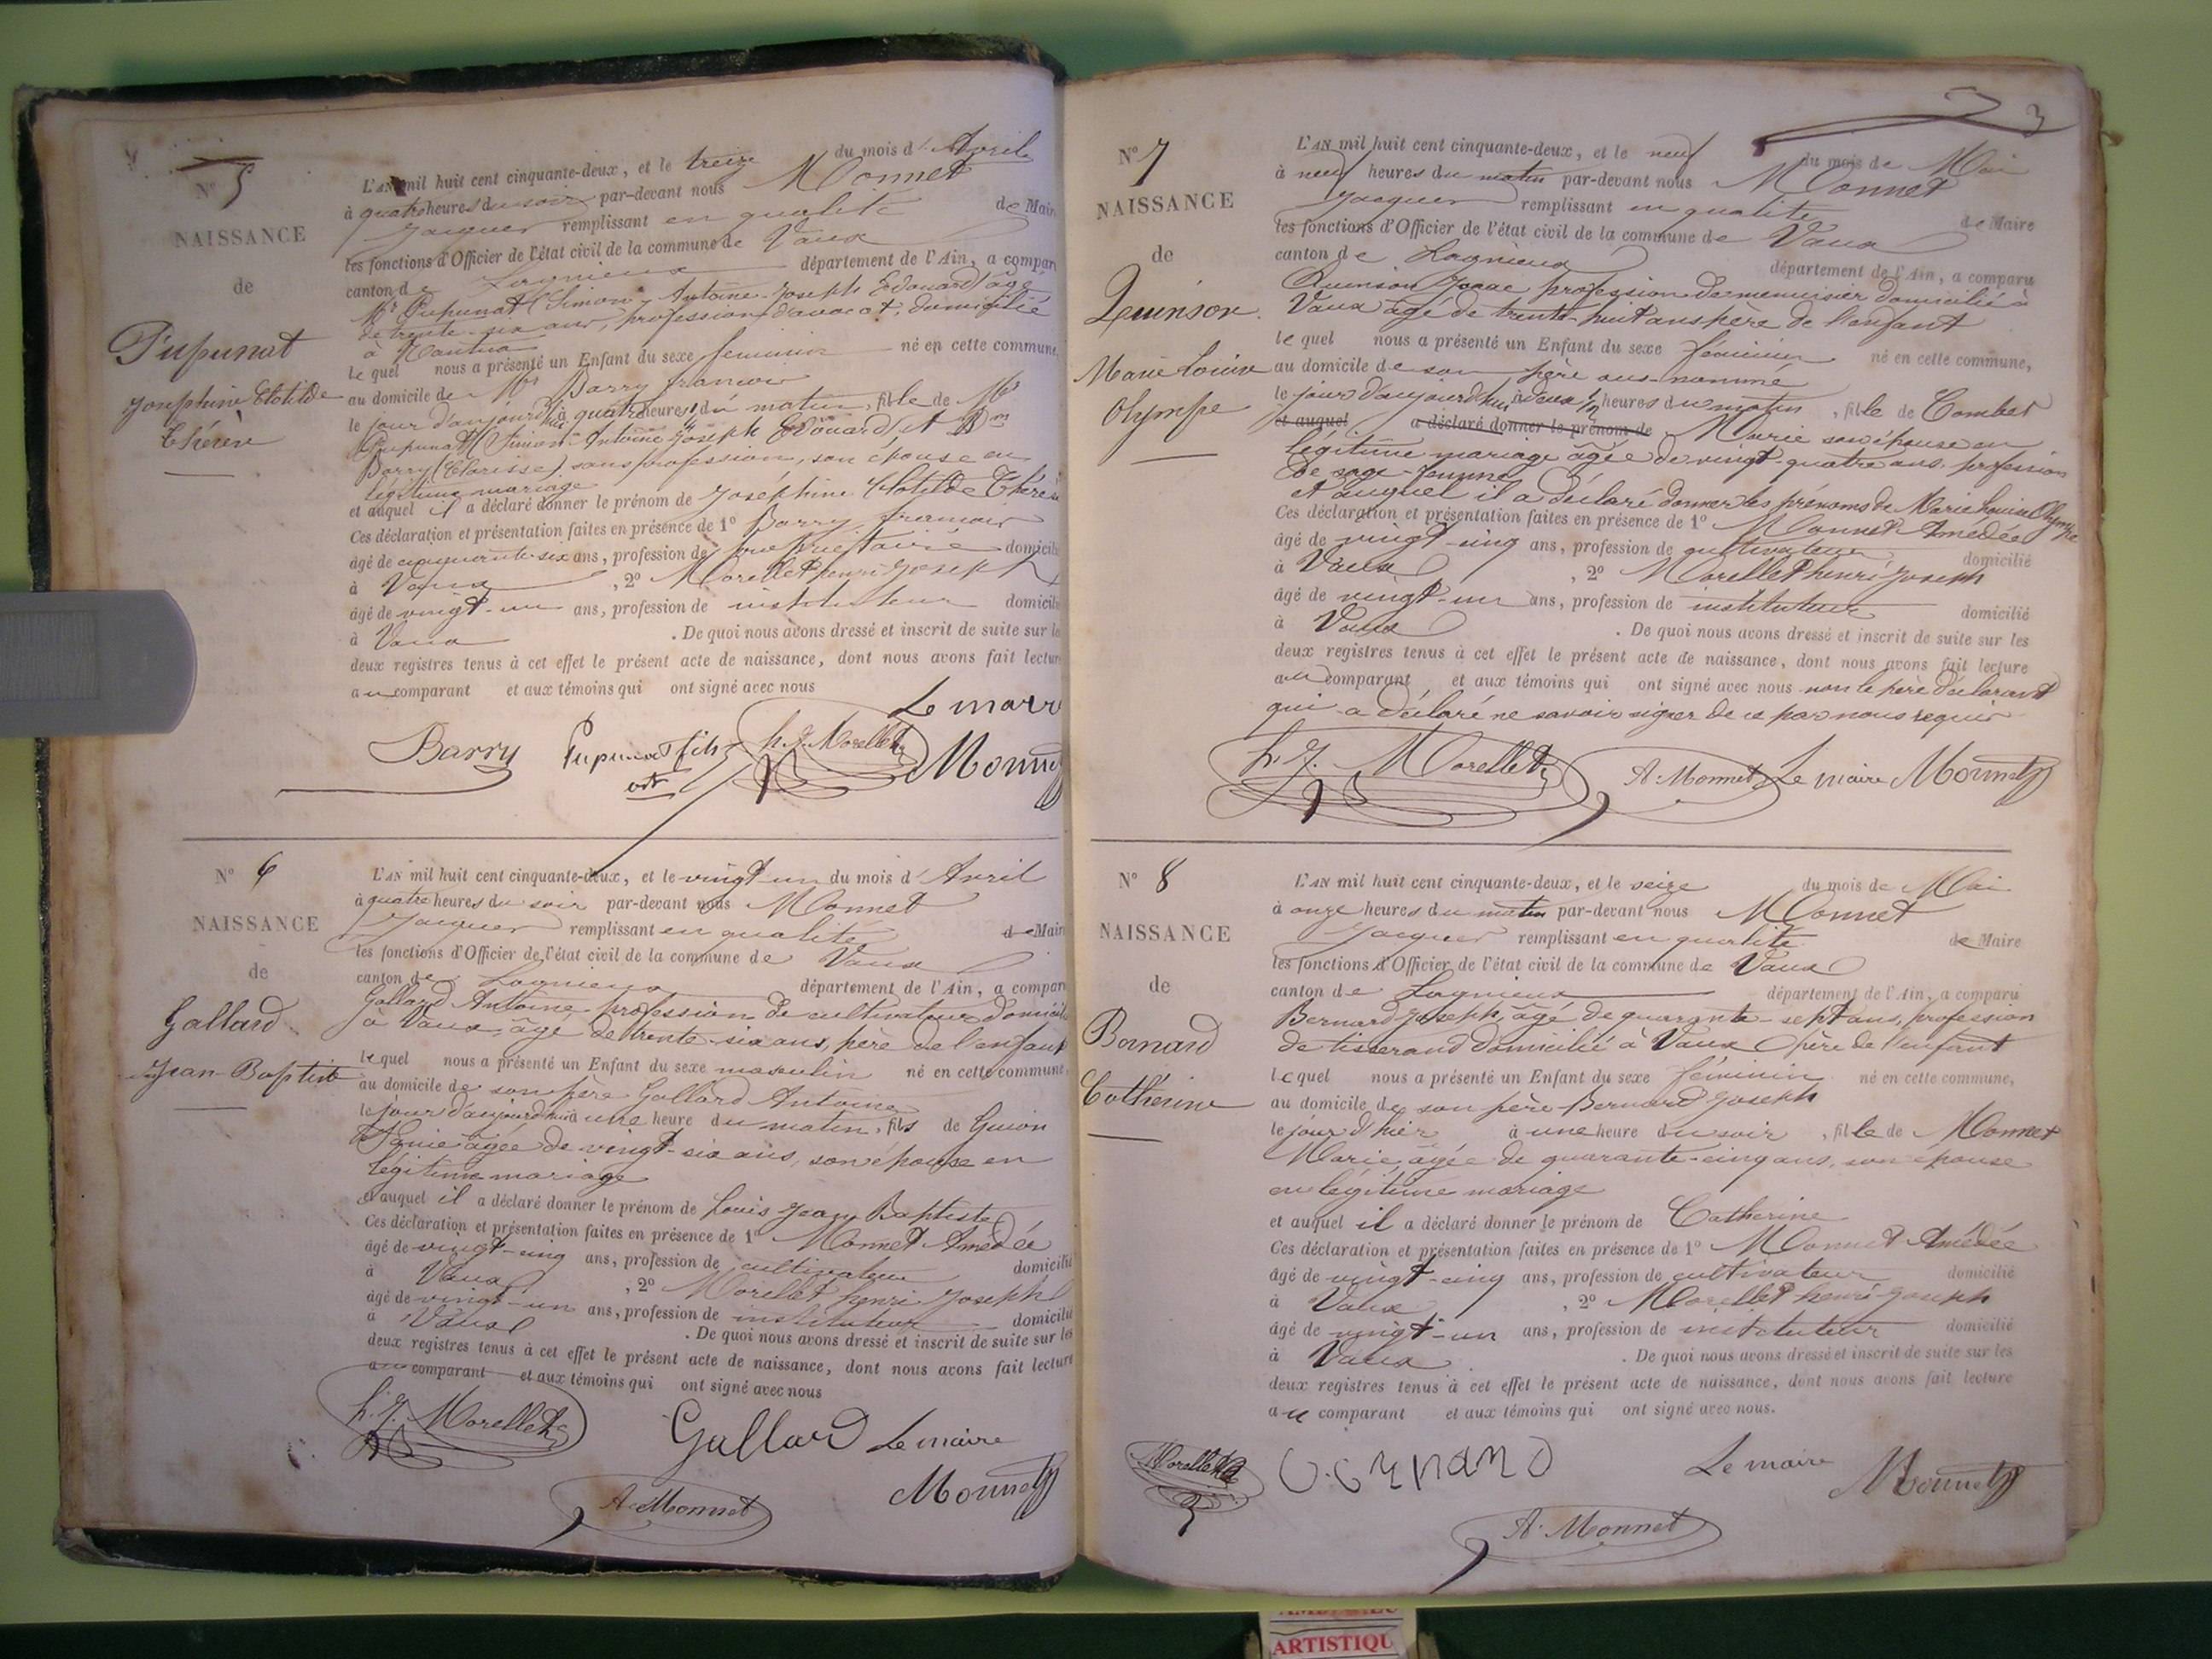 N° 5
NAISSANCE
de
Pupunat
Joséphine Clotilde
Thérèse
L'AN mil huit cent cinquante-deux, et le treize du mois d'Avril
à quatre heures du soir par-devant nous Monnet
Jacques remplissant en qualité de Maire
les fonctions d'Officier de l'état civil de la commune de Vaux
canton de Lagnieux département de l'Ain, a comparu
Mr Pupunat (Simon-Antoine-Joseph Edouard) âgé
de trente-six ans, profession d'avocat, domicilié
à Nantua
lequel nous a présenté un Enfant du sexe féminin né en cette commune,
au domicile de Mr Barry françois
le jour d'aujourd'hui à quatre heures du matin, fille de Mr
Pupunat (Simon-Antoine Joseph Edouard) et
Barry (Clarisse) sans profession, son épouse en
légitime mariage
et auquel il a déclaré donner le prénom de Joséphine Clotilde Thérèse
Ces déclaration et présentation faites en présence de 1° Barry françois
âgé de cinquante-six ans, profession de propriétaire domicilié
à Vaux, 2° Morellet henri Joseph
âgé de vingt-un ans, profession de instituteur domicilié
à Vaux. De quoi nous avons dressé et inscrit de suite sur les
deux registres tenus à cet effet le présent acte de naissance, dont nous avons fait lecture
au comparant et aux témoins qui ont signé avec nous
Le maire
Barry Pupunat fils h. J. Morellet Monnet
N° 6
NAISSANCE
de
Gallard
Jean-Baptiste
L'AN mil huit cent cinquante-deux, et le vingt-un du mois d'Avril
à quatre heures du soir par-devant nous Monnet
Jacques remplissant en qualité de Maire
les fonctions d'Officier de l'état civil de la commune de Vaux
canton de Lagnieux département de l'Ain, a comparu
Gallard Antoine profession de cultivateur domicilié
à Vaux âgé de trente-six ans, père de l'enfant
lequel nous a présenté un Enfant du sexe masculin né en cette commune,
au domicile de son père Gallard Antoine
le jour d'aujourd'hui à une heure du matin, fils de Guion
âgée de vingt-six ans, son épouse en
légitime mariage
et auquel il a déclaré donner le prénom de Louis Jean Baptiste
Ces déclaration et présentation faites en présence de 1° Monnet Amédée
âgé de vingt-cinq ans, profession de cultivateur domicilié
à Vaux, 2° Morellet henri Joseph
âgé de vingt-un ans, profession de instituteur domicilié
à Vaux. De quoi nous avons dressé et inscrit de suite sur les
deux registres tenus à cet effet le présent acte de naissance, dont nous avons fait lecture
au comparant et aux témoins qui ont signé avec nous
h. J. Morellet Gallard Le maire
A. Monnet Monnet
3
N° 7
NAISSANCE
de
Quinson
Marie Louise
Olympe
L'AN mil huit cent cinquante-deux, et le neuf du mois de Mai
à neuf heures du matin par-devant nous Monnet
Jacques remplissant en qualité de Maire
les fonctions d'Officier de l'état civil de la commune de Vaux
canton de Lagnieux département de l'Ain, a comparu
Quinson Isaac profession de menuisier domicilié à
Vaux âgé de trente-huit ans père de l'enfant
lequel nous a présenté un Enfant du sexe féminin né en cette commune,
au domicile de son père sus-nommé
le jour d'aujourd'hui à deux 1/2 heures du matin, fille de Combet
et auquel a déclaré donner le prénom de Marie son épouse en
légitime mariage âgée de vingt-quatre ans, profession
de sage-femme
et auquel il a déclaré donner les prénoms de Marie Louise Olympe
Ces déclaration et présentation faites en présence de 1° Monnet Amédée
âgé de vingt-cinq ans, profession de cultivateur domicilié
à Vaux, 2° Morellet henri Joseph
âgé de vingt-un ans, profession de instituteur domicilié
à Vaux. De quoi nous avons dressé et inscrit de suite sur les
deux registres tenus à cet effet le présent acte de naissance, dont nous avons fait lecture
au comparant et aux témoins qui ont signé avec nous non le père déclarant
qui a déclaré ne savoir signer de ce par nous requis
h. J. Morellet A. Monnet Le maire Monnet
N° 8
NAISSANCE
de
Bernard
Catherine
L'AN mil huit cent cinquante-deux, et le seize du mois de Mai
à onze heures du matin par-devant nous Monnet
Jacques remplissant en qualité de Maire
les fonctions d'Officier de l'état civil de la commune de Vaux
canton de Lagnieux département de l'Ain, a comparu
Bernard Joseph, âgé de quarante-sept ans, profession
de tisserand domicilié à Vaux père de l'enfant
lequel nous a présenté un Enfant du sexe féminin né en cette commune,
au domicile de son père Bernard Joseph
le jour d'hier à une heure du soir, fille de Monnet
Marie âgée de quarante-cinq ans, son épouse
en légitime mariage
et auquel il a déclaré donner le prénom de Catherine
Ces déclaration et présentation faites en présence de 1° Monnet Amédée
âgé de vingt-cinq ans, profession de cultivateur domicilié
à Vaux, 2° Morellet henri Joseph
âgé de vingt-un ans, profession de instituteur domicilié
à Vaux. De quoi nous avons dressé et inscrit de suite sur les
deux registres tenus à cet effet le présent acte de naissance, dont nous avons fait lecture
au comparant et aux témoins qui ont signé avec nous.
Morellet Le maire Monnet
A. Monnet
ARTISTIQU